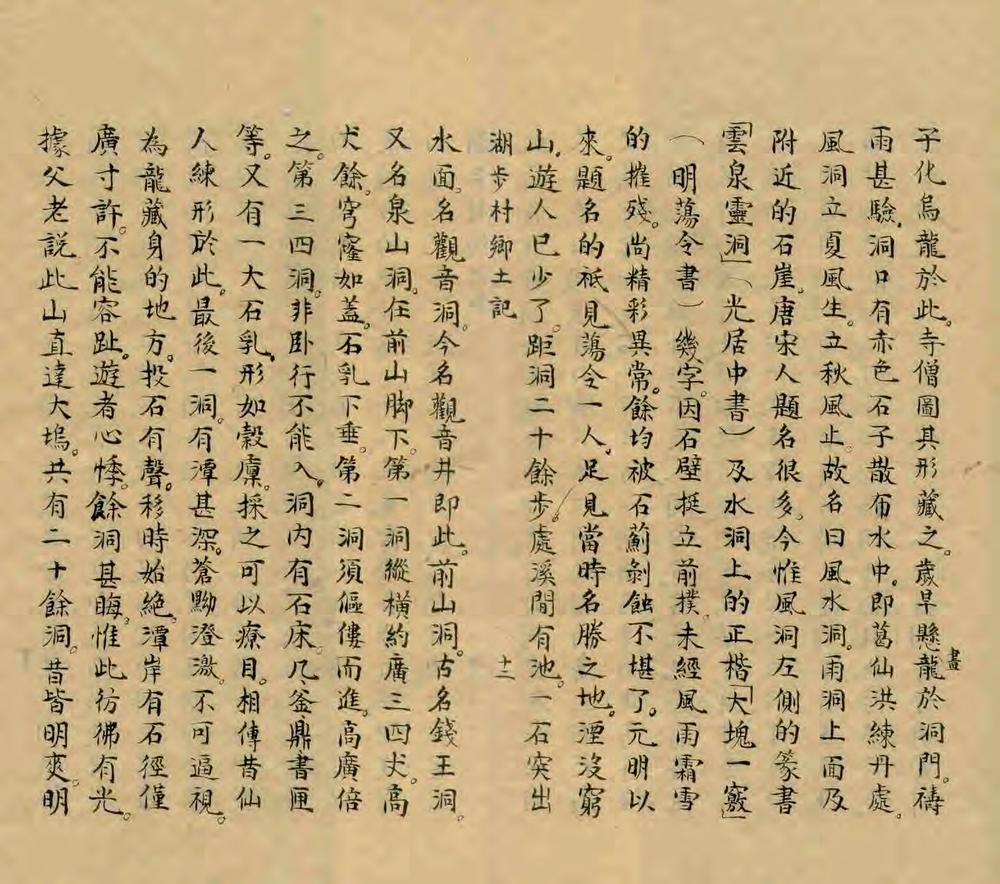 子化烏龍於此。寺僧圖其形藏之。歲旱懸畫龍於洞門。禱
雨甚驗。洞口有赤色石子散布水中。即葛仙洪練丹處。
風洞立夏風生。立秋風止。故名曰風水洞。雨洞上面及
附近的石崖。唐宋人題名很多。今惟風洞左側的篆書
「雲泉靈洞」（光居中書）及水洞上的正楷「大塊一竅」
（明蕩令書）幾字。因石壁挺立前撲。未經風雨霜雪
的摧殘。尚精彩異常。餘均被石薊剝蝕不堪了。元明以
來。題名的祇見蕩令一人。足見當時名勝之地。湮沒窮
山。遊人已少了。距洞二十餘步。處溪間有池。一石突出
湖步村鄉土記
十二
水面。名觀音洞。今名觀音井即此。前山洞。古名錢王洞。
又名泉山洞。在前山脚下。第一洞縱橫約廣三四丈。高
丈餘。穹窿如蓋。石乳下垂。第二洞須傴僂而進。高廣倍
之。第三四洞。非卧行不能入。洞内有石床。几釜鼎書匣
等。又有一大石乳。形如穀廩。採之可以療目。相傳昔仙
人練形於此。最後一洞。有潭甚深。蒼黝澄澈。不可逼視。
為龍藏身的地方。投石有聲。移時始絶。潭岸有石徑僅
廣寸許。不能容趾。遊者心悸。餘洞甚晦。惟此彷彿有光。
據父老説此山直達大塢。共有二十餘洞。昔皆明爽。明